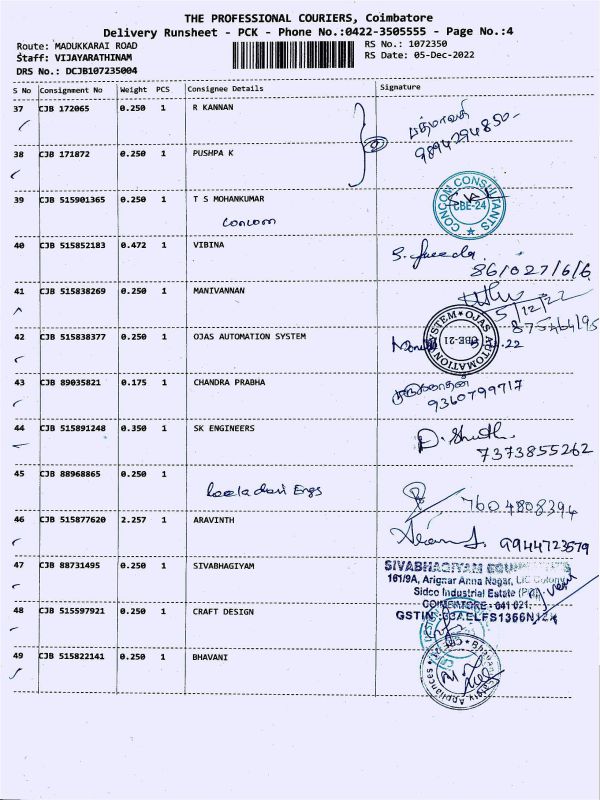 THE PROFESSIONAL COURIERS, Coimbatore
Delivery Runsheet - PCK - Phone No.:0422-3505555 - Page No.:4
Route: MADUKKARAI ROAD RS No.: 1072350
Staff: VIJAYARATHINAM RS Date: 05-Dec-2022
DRS No.: DCJB107235004
S No Consignment No Weight PCS Consignee Details Signature
37 CJB 172065 0.250 1 R KANNAN
பத்மாவதி
9894294850
38 CJB 171872 0.250 1 PUSHPA K
39 CJB 515901365 0.250 1 T S MOHANKUMAR
Concom
CONCOM CONSULTANTS
CBE-24
40 CJB 515852183 0.472 1 VIBINA
86/027/6/6
41 CJB 515838269 0.250 1 MANIVANNAN
5/12/22
42 CJB 515838377 0.250 1 OJAS AUTOMATION SYSTEM
OJAS AUTOMATION SYSTEM
CBE-21
43 CJB 89035821 0.175 1 CHANDRA PRABHA
9360799717
44 CJB 515891248 0.350 1 SK ENGINEERS
7373855262
45 CJB 88968865 0.250 1
Engs
7604808394
46 CJB 515877620 2.257 1 ARAVINTH
9944723579
47 CJB 88731495 0.250 1 SIVABHAGIYAM
SIVABHAGIYAM
161/9A, Arignar Anna Nagar, LIC Colony
Sidco Industrial Estate
COIMBATORE - 641 021.
48 CJB 515597921 0.250 1 CRAFT DESIGN
GSTIN
49 CJB 515822141 0.250 1 BHAVANI